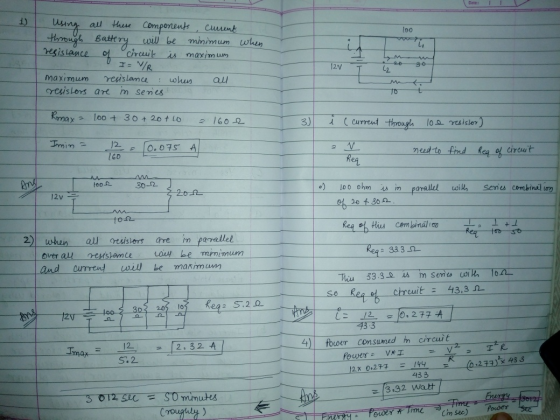 1) Using all these components, current
through Battery will be minimum when
resistance of circuit is maximum
I = V/R
maximum resistance: when all
resistors are in series
Rmax = 100 + 30 + 20 + 10 = 160 Ω
Imin = 12/160 = 0.075 A
Ans
12V
100Ω
30Ω
20Ω
10Ω
2) When all resistors are in parallel
overall resistance will be minimum
and current will be maximum
Ans
12V
100Ω
30Ω
20Ω
10Ω
Req = 5.2Ω
Imax = 12/5.2 = 2.32 A
3012 sec = 50 minutes
(roughly)
100
i
i1
12V
i2
20
30
10
i
3) i (current through 10Ω resistor)
= V/Req need to find Req of circuit
100 ohm is in parallel with series combination
of 20 & 30Ω
Req of this combination 1/Req = 1/100 + 1/50
Req = 33.3 Ω
This 33.3Ω is in series with 10Ω
so Req of circuit = 43.3Ω
Ans
i = 12/43.3 = 0.277 A
4) Power consumed in circuit
Power = V*I = V²/R = I²R
12 × 0.277 = 144/43.3 = (0.277)² × 43.3
= 3.32 Watt
5) Energy = Power * Time Time (in sec) = Energy/Power = 3012 sec